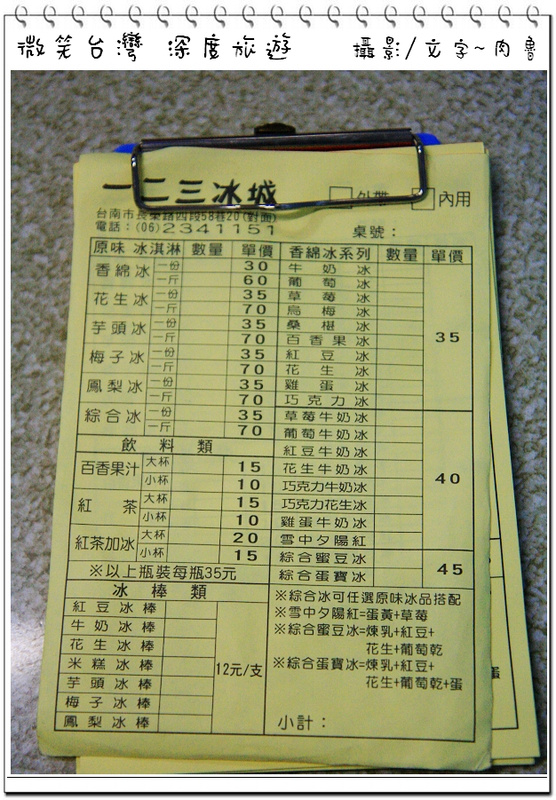 微笑台灣 深度旅遊 攝影/文字~肉魯
一二三冰城 外帶 內用
台南市長榮路四段58巷20(對面)
電話:(06)2341151 桌號:
原味冰淇淋 數量 單價
香綿冰 一份 30
一斤 60
花生冰 一份 35
一斤 70
芋頭冰 一份 35
一斤 70
梅子冰 一份 35
一斤 70
鳳梨冰 一份 35
一斤 70
綜合冰 一份 35
一斤 70
飲料類
百香果汁 大杯 15
小杯 10
紅茶 大杯 15
小杯 10
紅茶加冰 大杯 20
小杯 15
※以上瓶裝每瓶35元
冰棒類
紅豆冰棒
牛奶冰棒
花生冰棒
米糕冰棒
芋頭冰棒
梅子冰棒
鳳梨冰棒
12元/支
香綿冰系列 數量 單價
牛奶冰
葡萄冰
草莓冰
烏梅冰
桑椹冰
百香果冰
紅豆冰
花生冰
雞蛋冰
巧克力冰
35
草莓牛奶冰
葡萄牛奶冰
紅豆牛奶冰
花生牛奶冰
巧克力牛奶冰
巧克力花生冰
雞蛋牛奶冰
雪中夕陽紅
40
綜合蜜豆冰
綜合蛋寶冰
45
※綜合冰可任選原味冰品搭配
※雪中夕陽紅=蛋黃+草莓
※綜合蜜豆冰=煉乳+紅豆+
花生+葡萄乾
※綜合蛋寶冰=煉乳+紅豆+
花生+葡萄乾+蛋
小計: